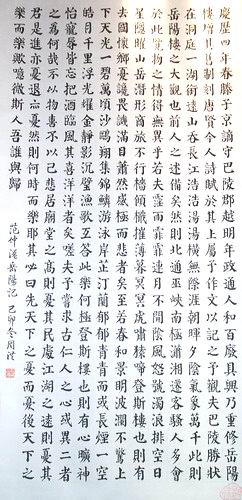 慶歷四年春滕子京謫守巴陵郡越明年政通人和百廢具興乃重修岳陽
樓增其舊制刻唐賢今人詩賦於其上屬予作文以記之予觀夫巴陵勝狀
在洞庭一湖銜遠山吞長江浩浩湯湯橫無際涯朝暉夕陰氣象萬千此則
岳陽樓之大觀也前人之述備矣然則北通巫峽南極瀟湘遷客騷人多會
於此覽物之情得無異乎若夫霪雨霏霏連月不開陰風怒號濁浪排空日
星隱曜山岳潛形商旅不行檣傾楫摧薄暮冥冥虎嘯猿啼登斯樓也則有
去國懷鄉憂讒畏譏滿目蕭然感極而悲者矣至若春和景明波瀾不驚上
下天光一碧萬頃沙鷗翔集錦鱗游泳岸芷汀蘭郁郁青青而或長煙一空
皓月千里浮光耀金靜影沉璧漁歌互答此樂何極登斯樓也則有心曠神
怡寵辱皆忘把酒臨風其喜洋洋者矣嗟夫予嘗求古仁人之心或異二者
之為何哉不以物喜不以己悲居廟堂之高則憂其民處江湖之遠則憂其
君是進亦憂退亦憂然則何時而樂耶其必曰先天下之憂而憂後天下之
樂而樂歟噫微斯人吾誰與歸
范仲淹岳陽記 己卯冬周